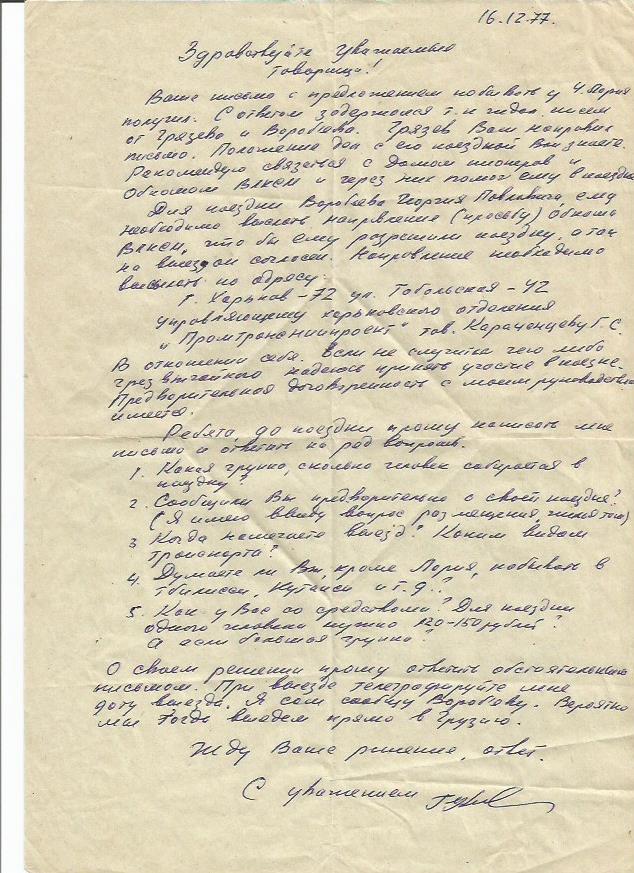 16.12.77.
Здравствуйте уважаемые
товарищи!
Ваше письмо с предложением побывать у Ч. Лория
получил. С ответом задержался т.к. ждал писем
от Грязева и Воробьева. Грязев Вам направил
письмо. Положение дел с его поездкой Вы знаете.
Рекомендую связаться с Домом пионеров и
Обкомом ВЛКСМ и через них помочь ему в поездке.
Для поездки Воробьева Георгия Павловича, ему
необходимо выслать направление (просьбу) Обкома
ВЛКСМ, что бы ему разрешили поездку, а он
на выезд он согласен. Направление необходимо
выслать по адресу:
г. Харьков-72 ул. Тобольская-42
управляющему харьковского отделения
"Промтрансниипроект" тов. Караченцеву Г.С.
В отношении себя. Если не случится чего либо
чрезвычайного надеюсь принять участие в поездке.
Предварительная договоренность с моим руководством
имеется.
Ребята, до поездки прошу написать мне
письмо и ответить на ряд вопросов.
1. Какая группа, сколько человек собирается в
поездку?
2. Сообщили Вы предварительно о своей поездке?
(Я имею ввиду вопрос размещения,
3. Когда намечаете выезд? Каким видом
транспорта?
4. Думаете ли Вы, кроме Лория, побывать в
Тбилиси, Кутаиси и т.д.?
5. Как у Вас со средствами? Для поездки
одного человека нужно 120-150 рублей?
А если большая группа?
О своем решении прошу ответить обстоятельным
письмом. При выезде телеграфируйте мне
дату выезда. Я сам сообщу Воробьеву. Вероятно
мы тогда выедем прямо в Грузию.
Жду Ваше решение, ответ.
С уважением